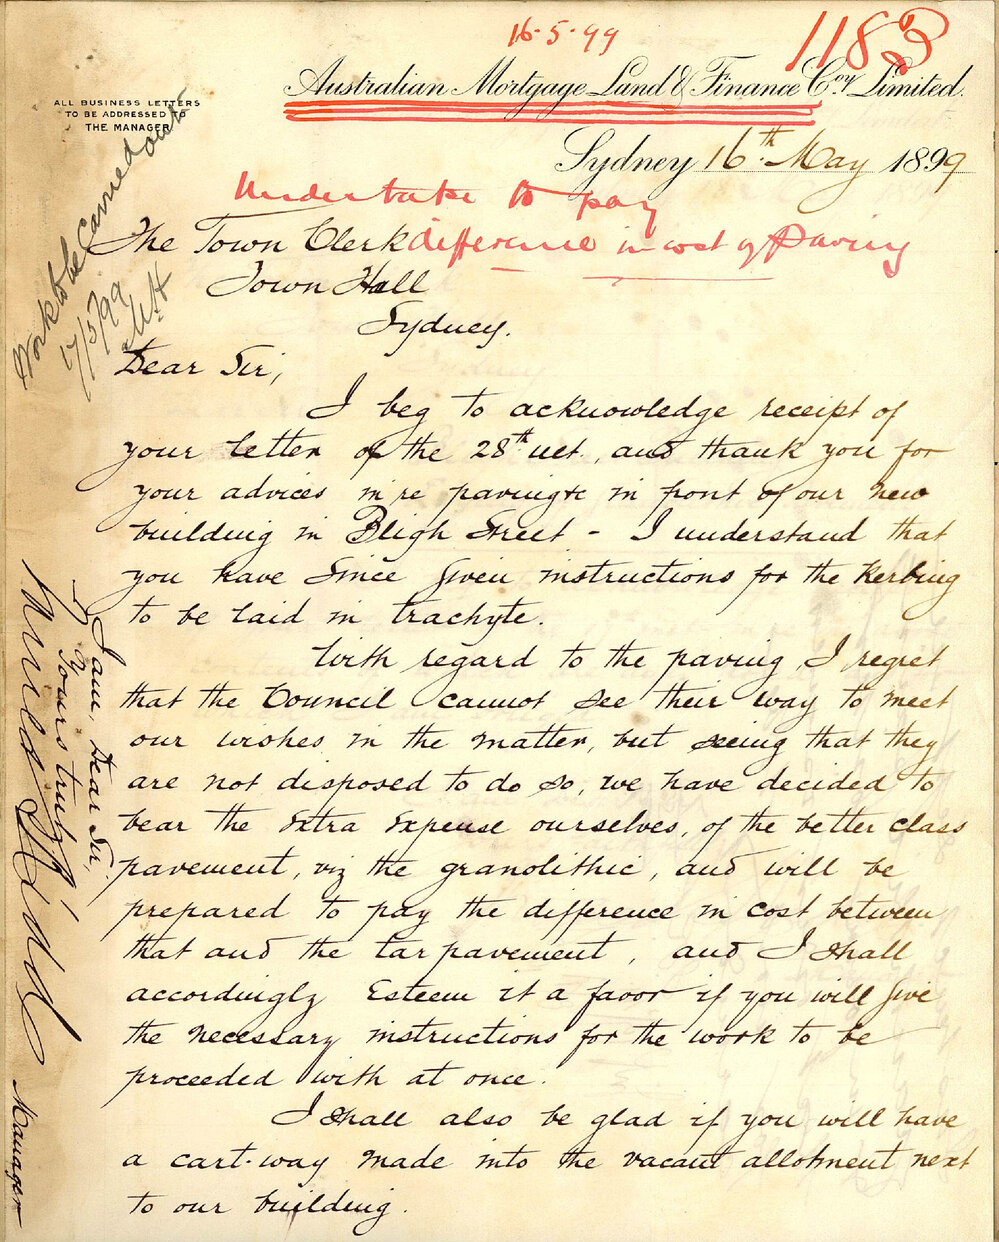 16-5-99
1183
Australian Mortgage Land & Finance Coy Limited.
ALL BUSINESS LETTERS
TO BE ADDRESSED TO
THE MANAGER
Sydney 16th May 1899
Undertake to pay
difference in cost of Paving
Work to be Carried out
17/5/99
The Town Clerk
Town Hall
Sydney.
Dear Sir,
I beg to acknowledge receipt of
your letter of the 28th ult., and thank you for
your advices in re paving &c in front of our new
building in Bligh Street - I understand that
you have since given instructions for the Kerbing
to be laid in trachyte.
With regard to the paving I regret
that the Council cannot see their way to meet
our wishes in the matter, but seeing that they
are not disposed to do so, we have decided to
bear the extra expense ourselves, of the better class
pavement, viz the granolithic, and will be
prepared to pay the difference in cost between
that and the tar pavement, and I shall
accordingly esteem it a favor if you will give
the necessary instructions for the work to be
proceeded with at once.
I shall also be glad if you will have
a cart-way made into the vacant allotment next
to our building.
I am, Dear Sir,
Yours truly
Manager